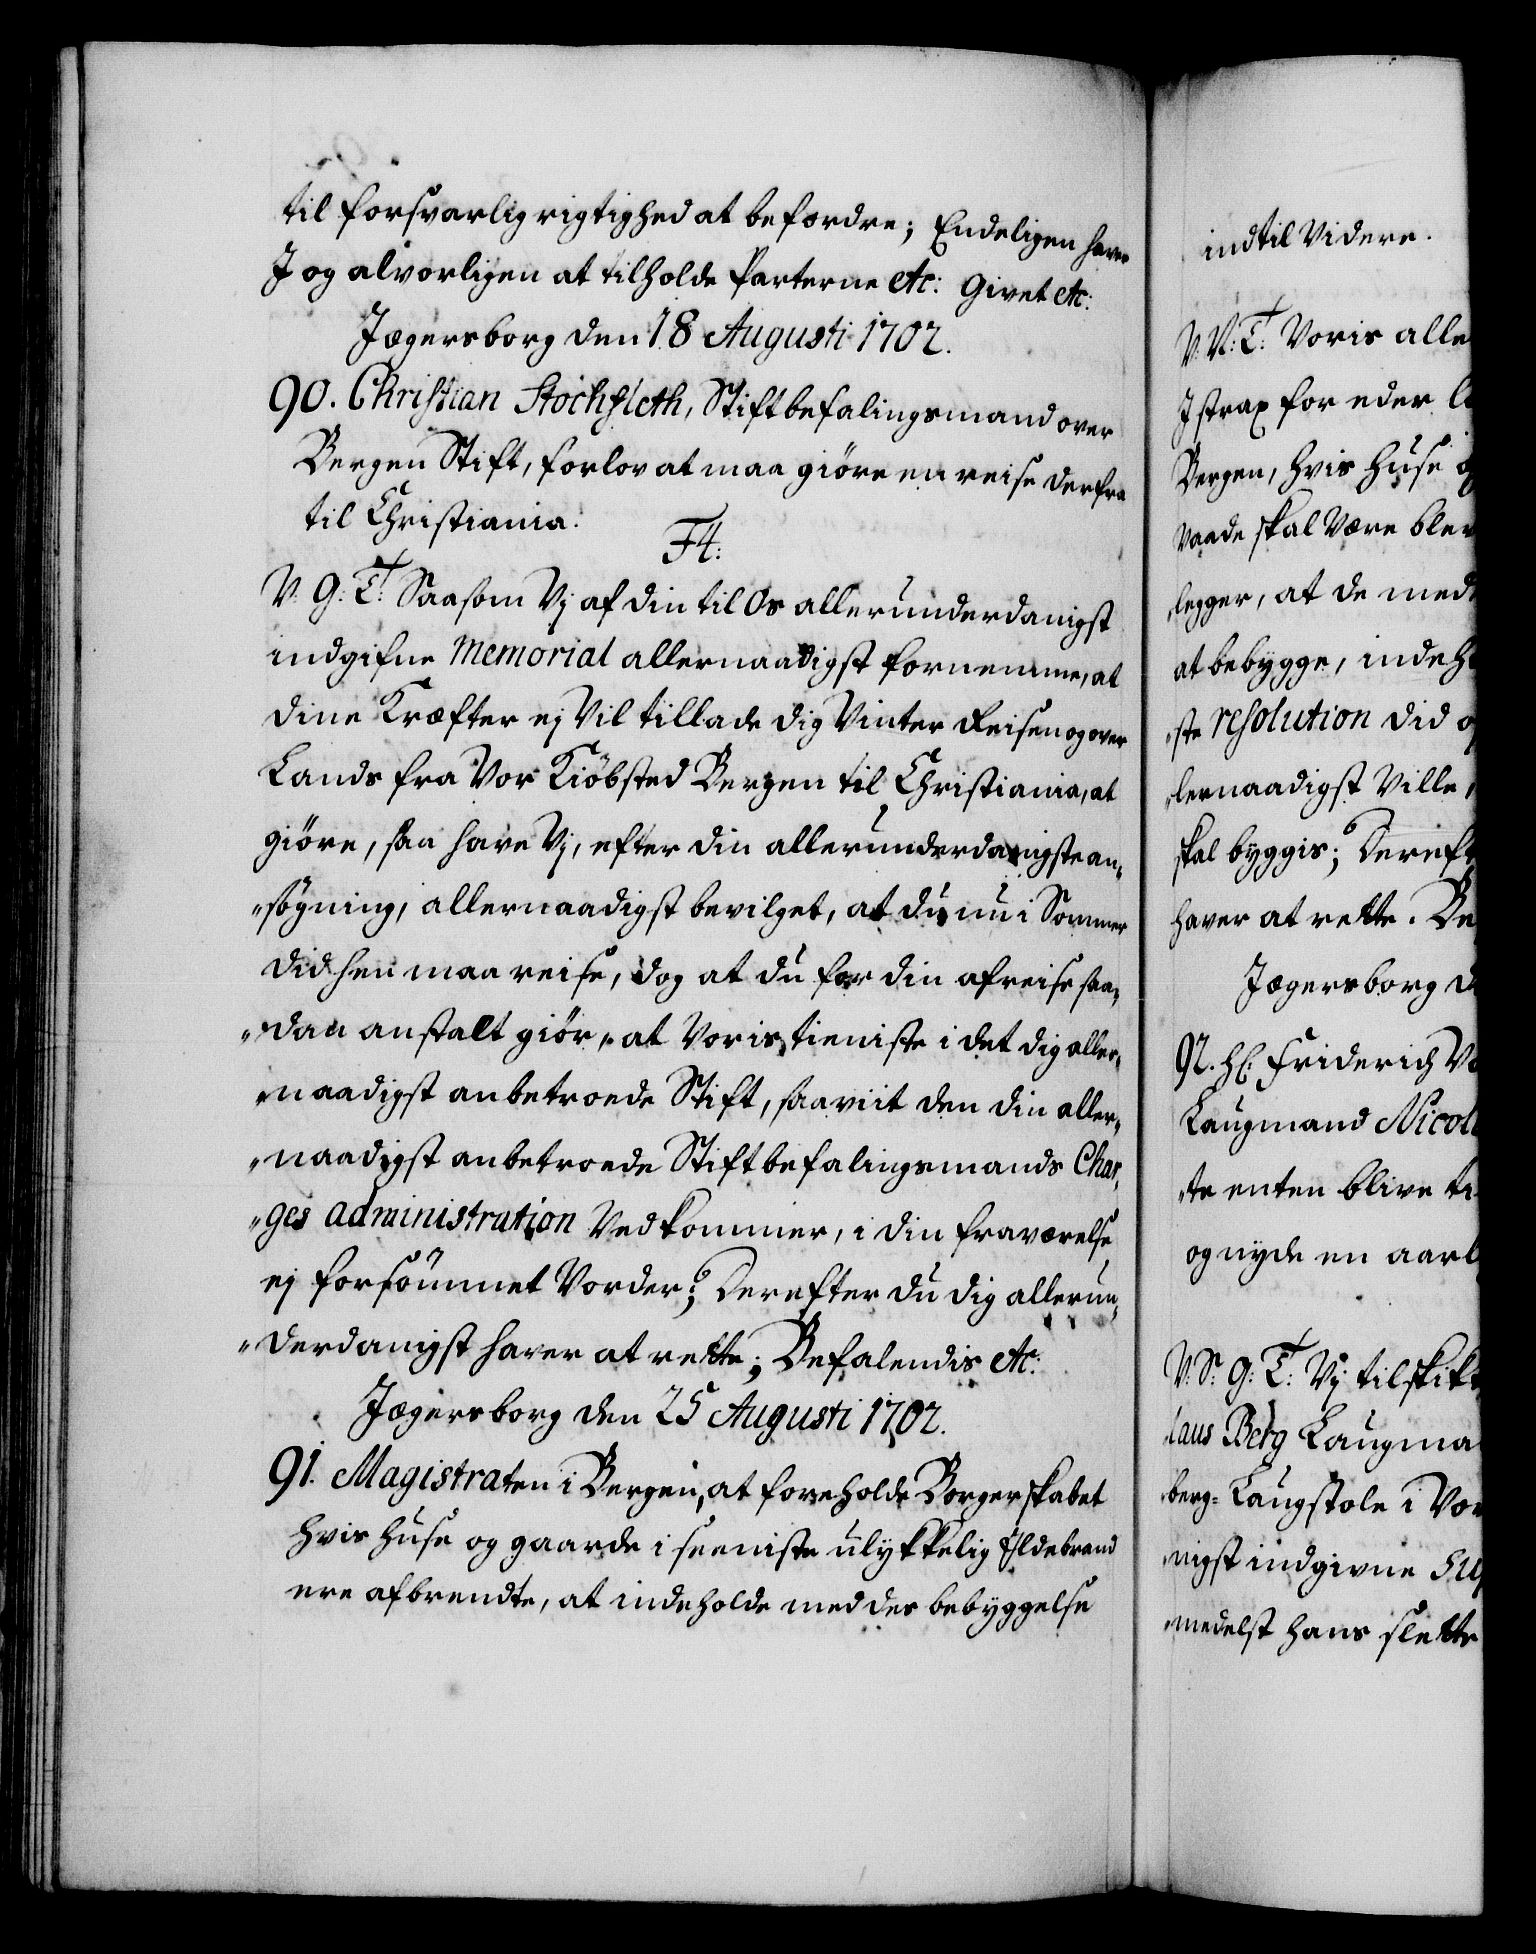 til forsvarlig rigtighed at befordre; Endeligen haver
I og alvorligen at tilholde Parterne etc: Givet etc:
Jægersborg den 18 Augusti 1702.
90. Christian Stochfleth, Stiftbefalingsmand over
Bergen Stift, forlov at maa giöre en reise derfra
til Christiania.
F4:
V. G: T: Saasom Vj af din til Os allerunderdanigst
indgifne Memorial allernaadigst fornemme, at
dine Kræfter ej Vil tillade dig Vinter Reisen og over
Lands fra Vor Kiöbsted Bergen til Christiania, at
giöre, saa have Vj, efter din allerunderdanigste an„
„søgning, allernaadigst bevilget, at du nu i Sommer
did hen maa reise, dog at du for din afreise saa„
„dan anstalt giör, at Voris tieniste i det dig aller„
„naadigst anbetroede Stift, saaviit den din aller„
„naadigst anbetroede Stiftbefalingsmands Char„
„ges administration Vedkommer, i din fraværelse
ej forsömmet Vorder; Derefter du dig allerun„
„derdanigst haver at rette; Befalendis etc:
Jægersborg den 25 Augusti 1702.
91. Magistraten i Bergen, at foreholde Borgerskabet
hvis huse og gaarde i seeniste ulykkelig Ildebrand
ere afbrendte, at indeholde med des bebyggelse
indtil Videre.
V: V: T: Voris alle
I strax for eder
Bergen, hvis huse
Vaade skal Være blev
legger, at de med
at bebygge, indeh
„ste resolution did
„lernaadigst Ville,
skal byggis; Dereft
haver at rette. Be
Jægersborg d
92. H: Friderich V
Laugmand Nicol
„te enten blive
og nyde en aarl
V: S: G: T: Vj tilskik
laus Berg Laugma
berg- Laugstole i Vor
nigst indgivne Sup
„medelst hans slette